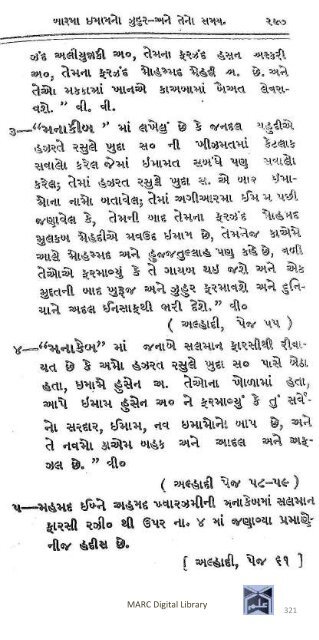 બારમા ઇમામનો ઝુહુર–અને તેનો સમય. ૨૯૭
ફરઝંદ અલીયુન્નકી અ૦, તેમના ફરઝંદ હસન અસ્કરી
અ૦, તેમના ફરઝંદ મોહમ્મદ મેહદી અ. છે. અને
તેઓ મક્કામાં ખાનએ કાઅબામાં બૈઅત લેવરા-
વશે. ” વી. વી.
૩—“મનાકીબ” માં લખેલું છે કે જનદલ યહુદીએ
હઝરતે રસુલે ખુદા સ૦ ની ખીઝમતમાં કેટલાક
સવાલો કરેલ જેમાં ઈમામત સબંધે પણ સવાલો
કરેલ; તેમાં હઝરત રસુલે ખુદા સ. એ બાર ઈમા-
મોના નામો બતાવેલ; તેમાં અગીઆરમા ઈમામ પછી
જણાવેલ કે, તેમની બાદ તેમના ફરઝંદ મોહમદ
મુલકબ મેહદીએ મવઉદ ઈમામ છે, તેમનેજ કાએમે
આલે મોહમ્મદ અને હુજજતુલ્લાહ પણ કહે છે, વળી
તેઓએ ફરમાવ્યું કે તે ગાયબ થઈ જશે અને એક
મુદ્દતની બાદ ખુરૂજ અને ઝુહુર ફરમાવશે અને દુનિ-
યાને અદલ ઈનસાફથી ભરી દેશે. ” વી૦
( અલ્હાદી, પેજ ૫૫ )
૪—“મનાકેબ” માં જનાબે સલમાન ફારસીથી રીવા-
યત છે કે અમો હઝરત રસુલે ખુદા સ૦ પાસે બેઠા
હતા, ઇમામે હુસેન અ. તેઓના ખોળામાં હતા,
આપે ઇમામ હુસેન અ૦ ને ફરમાવ્યું કે તું સર્વે-
નો સરદાર, ઈમામ, નવ ઇમામોનો બાપ છે, અને
તે નવમો કાએમ બહક અને આદલ અને અફ-
ઝલ છે. ” વી૦
( અલ્હાદી પેજ ૫૮-૫૯ )
૫—મહમદ ઈબ્ને અહમદ ખ્વારઝમીની મનાકેબમાં સલમાન
ફારસી રઝી૦ થી ઉપર ના. ૪ માં જણાવ્યા પ્રમાણે-
નીજ હદીસ છે.
[ અલ્હાદી, પેજ ૬૧ ]
MARC Digital Library
321